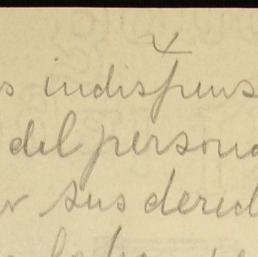 s indispens
del persona
r sus derech